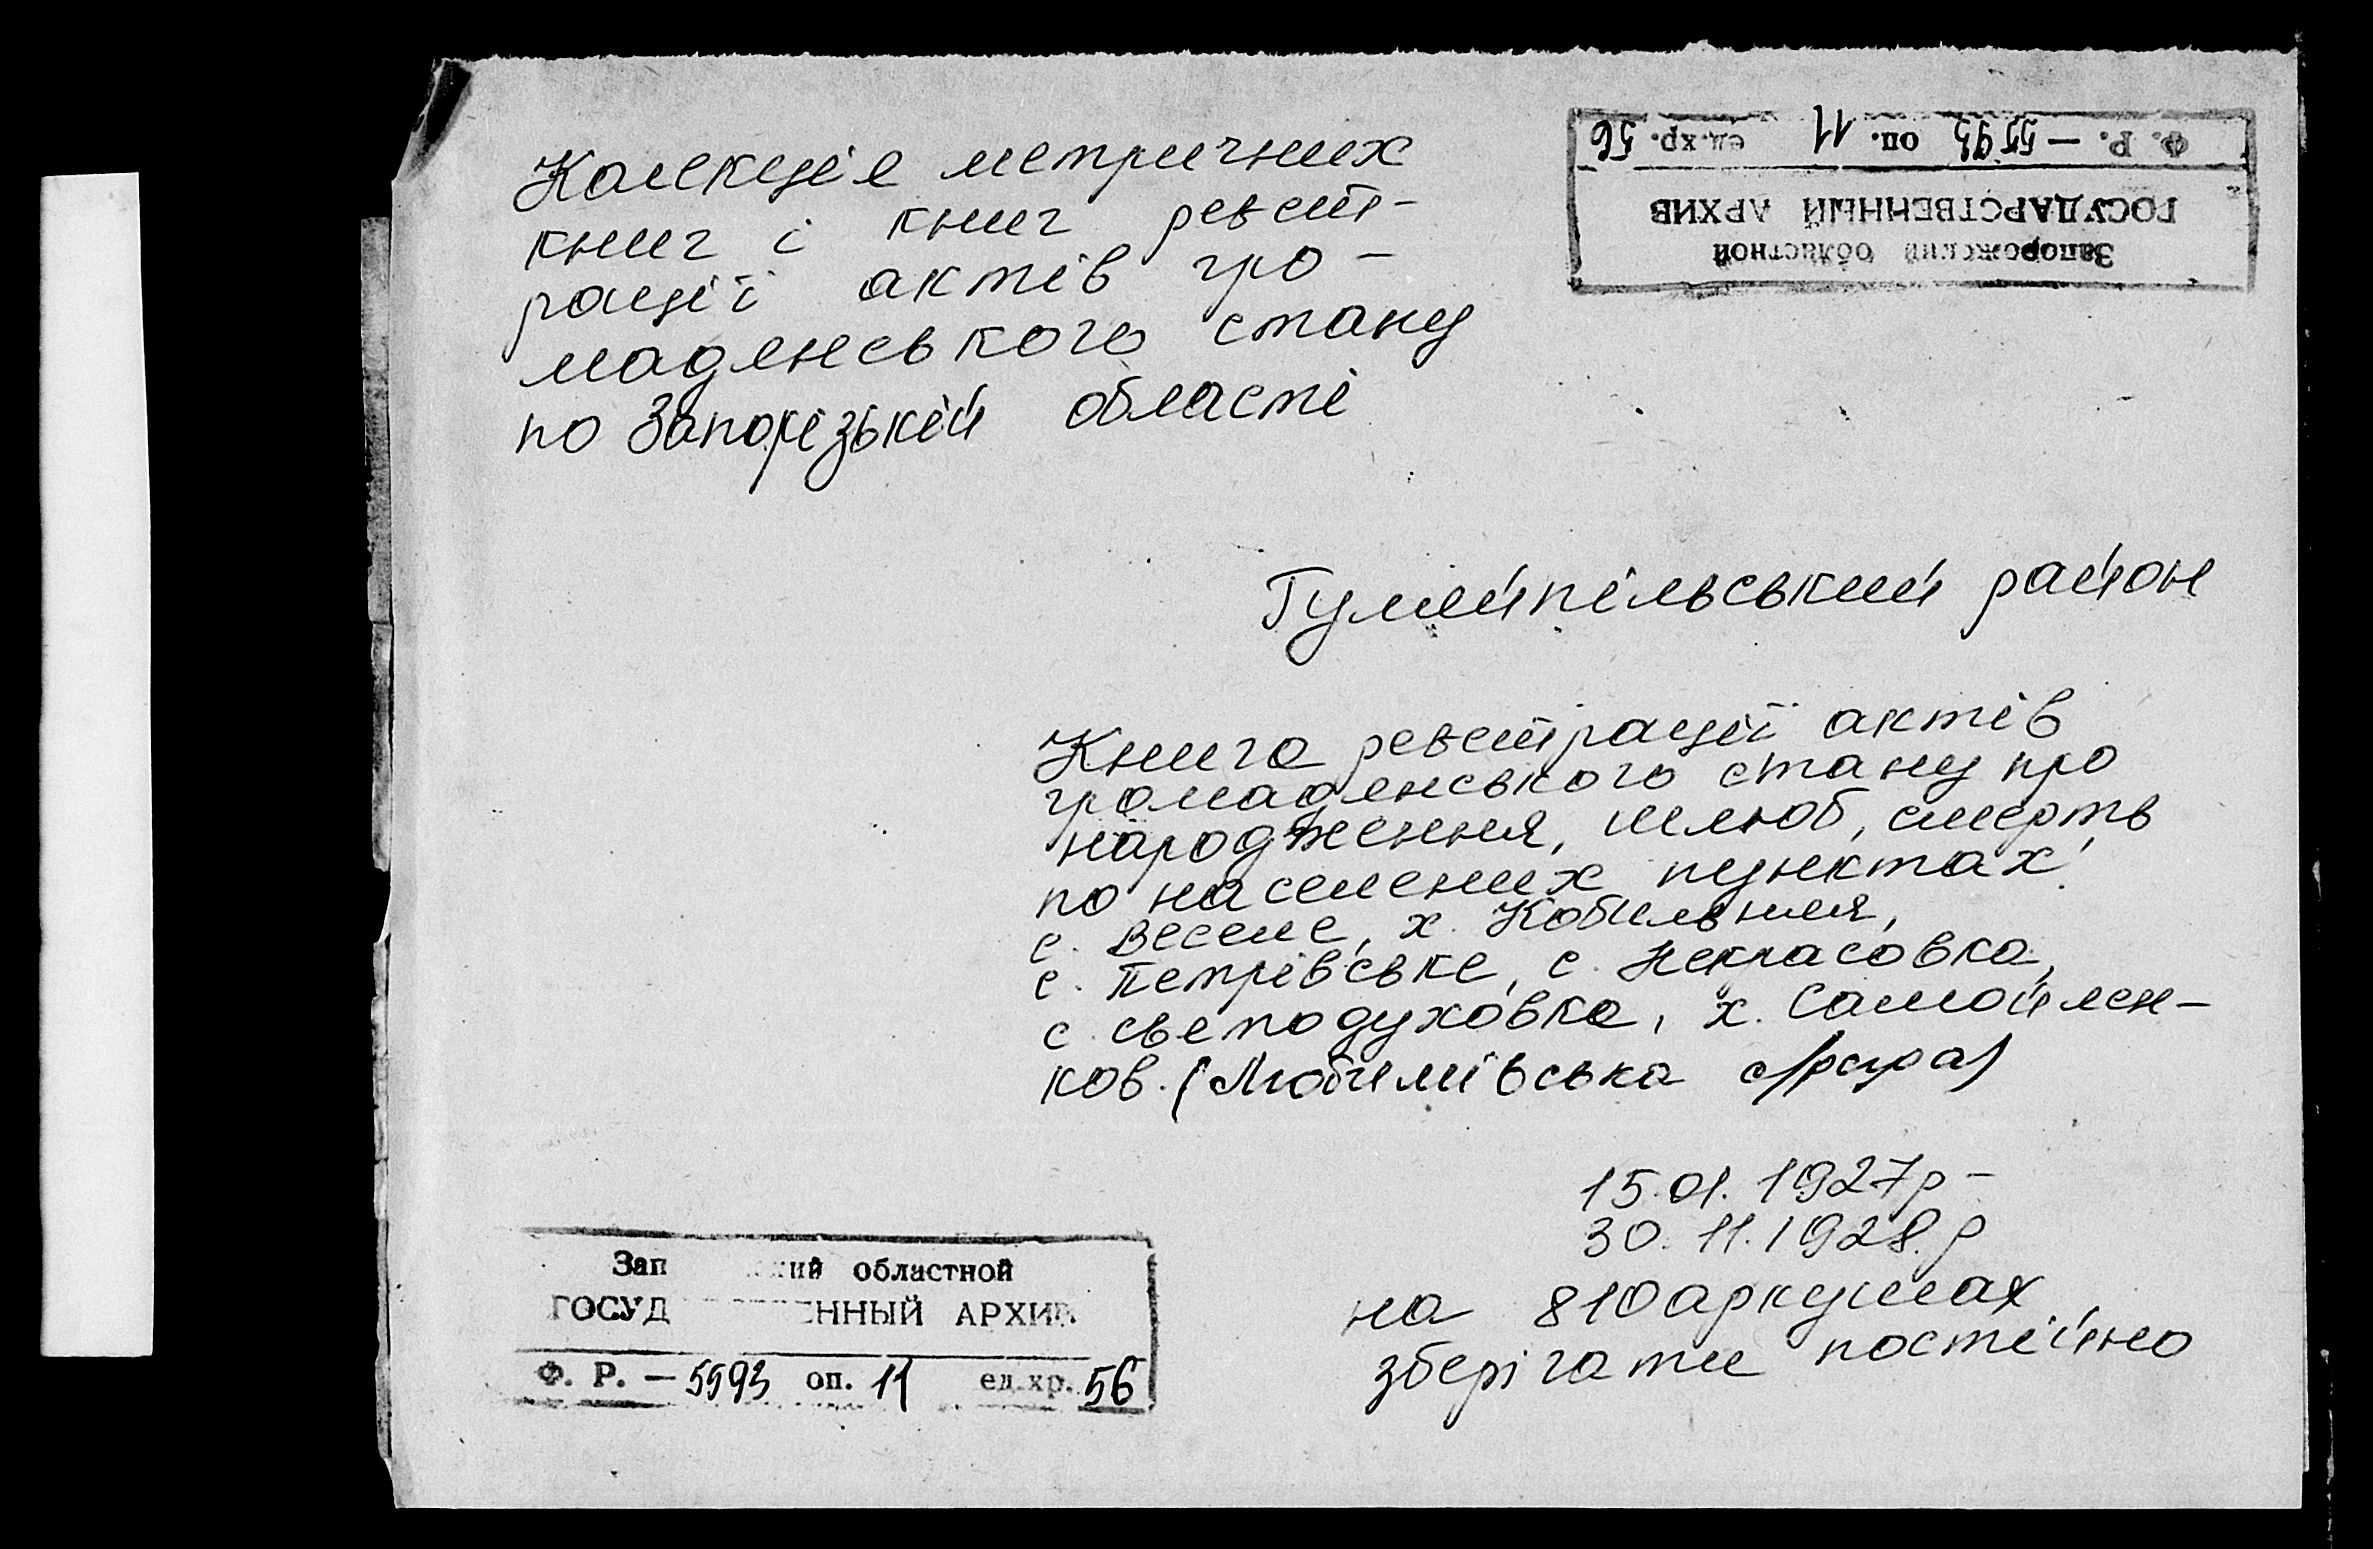 Колекція метричних
книг і книг реєст-
рації актів гро-
мадянського стану
по Запорізькій області
Запорожский областной
ГОСУДАРСТВЕННЫЙ АРХИВ
Ф. Р. — 5593 оп. 11 ед.хр. 56
Гуляйпільський район
Книга реєстрації актів
громадянського стану про
народження, шлюб, смерть
по населених пунктах:
с. Веселе, х. Кобильния,
с. Петрівське, с. Некрасовка,
с. Святодуховка, х. Самойлен-
ков. (Любимівська с/рада)
15.01.1927р -
30.11.1928.р
на 810 аркушах
зберігати постійно
Зап кий областной
ГОСУД ЕННЫЙ АРХИВ
Ф. Р. — 5593 оп. 11 ед.хр. 56